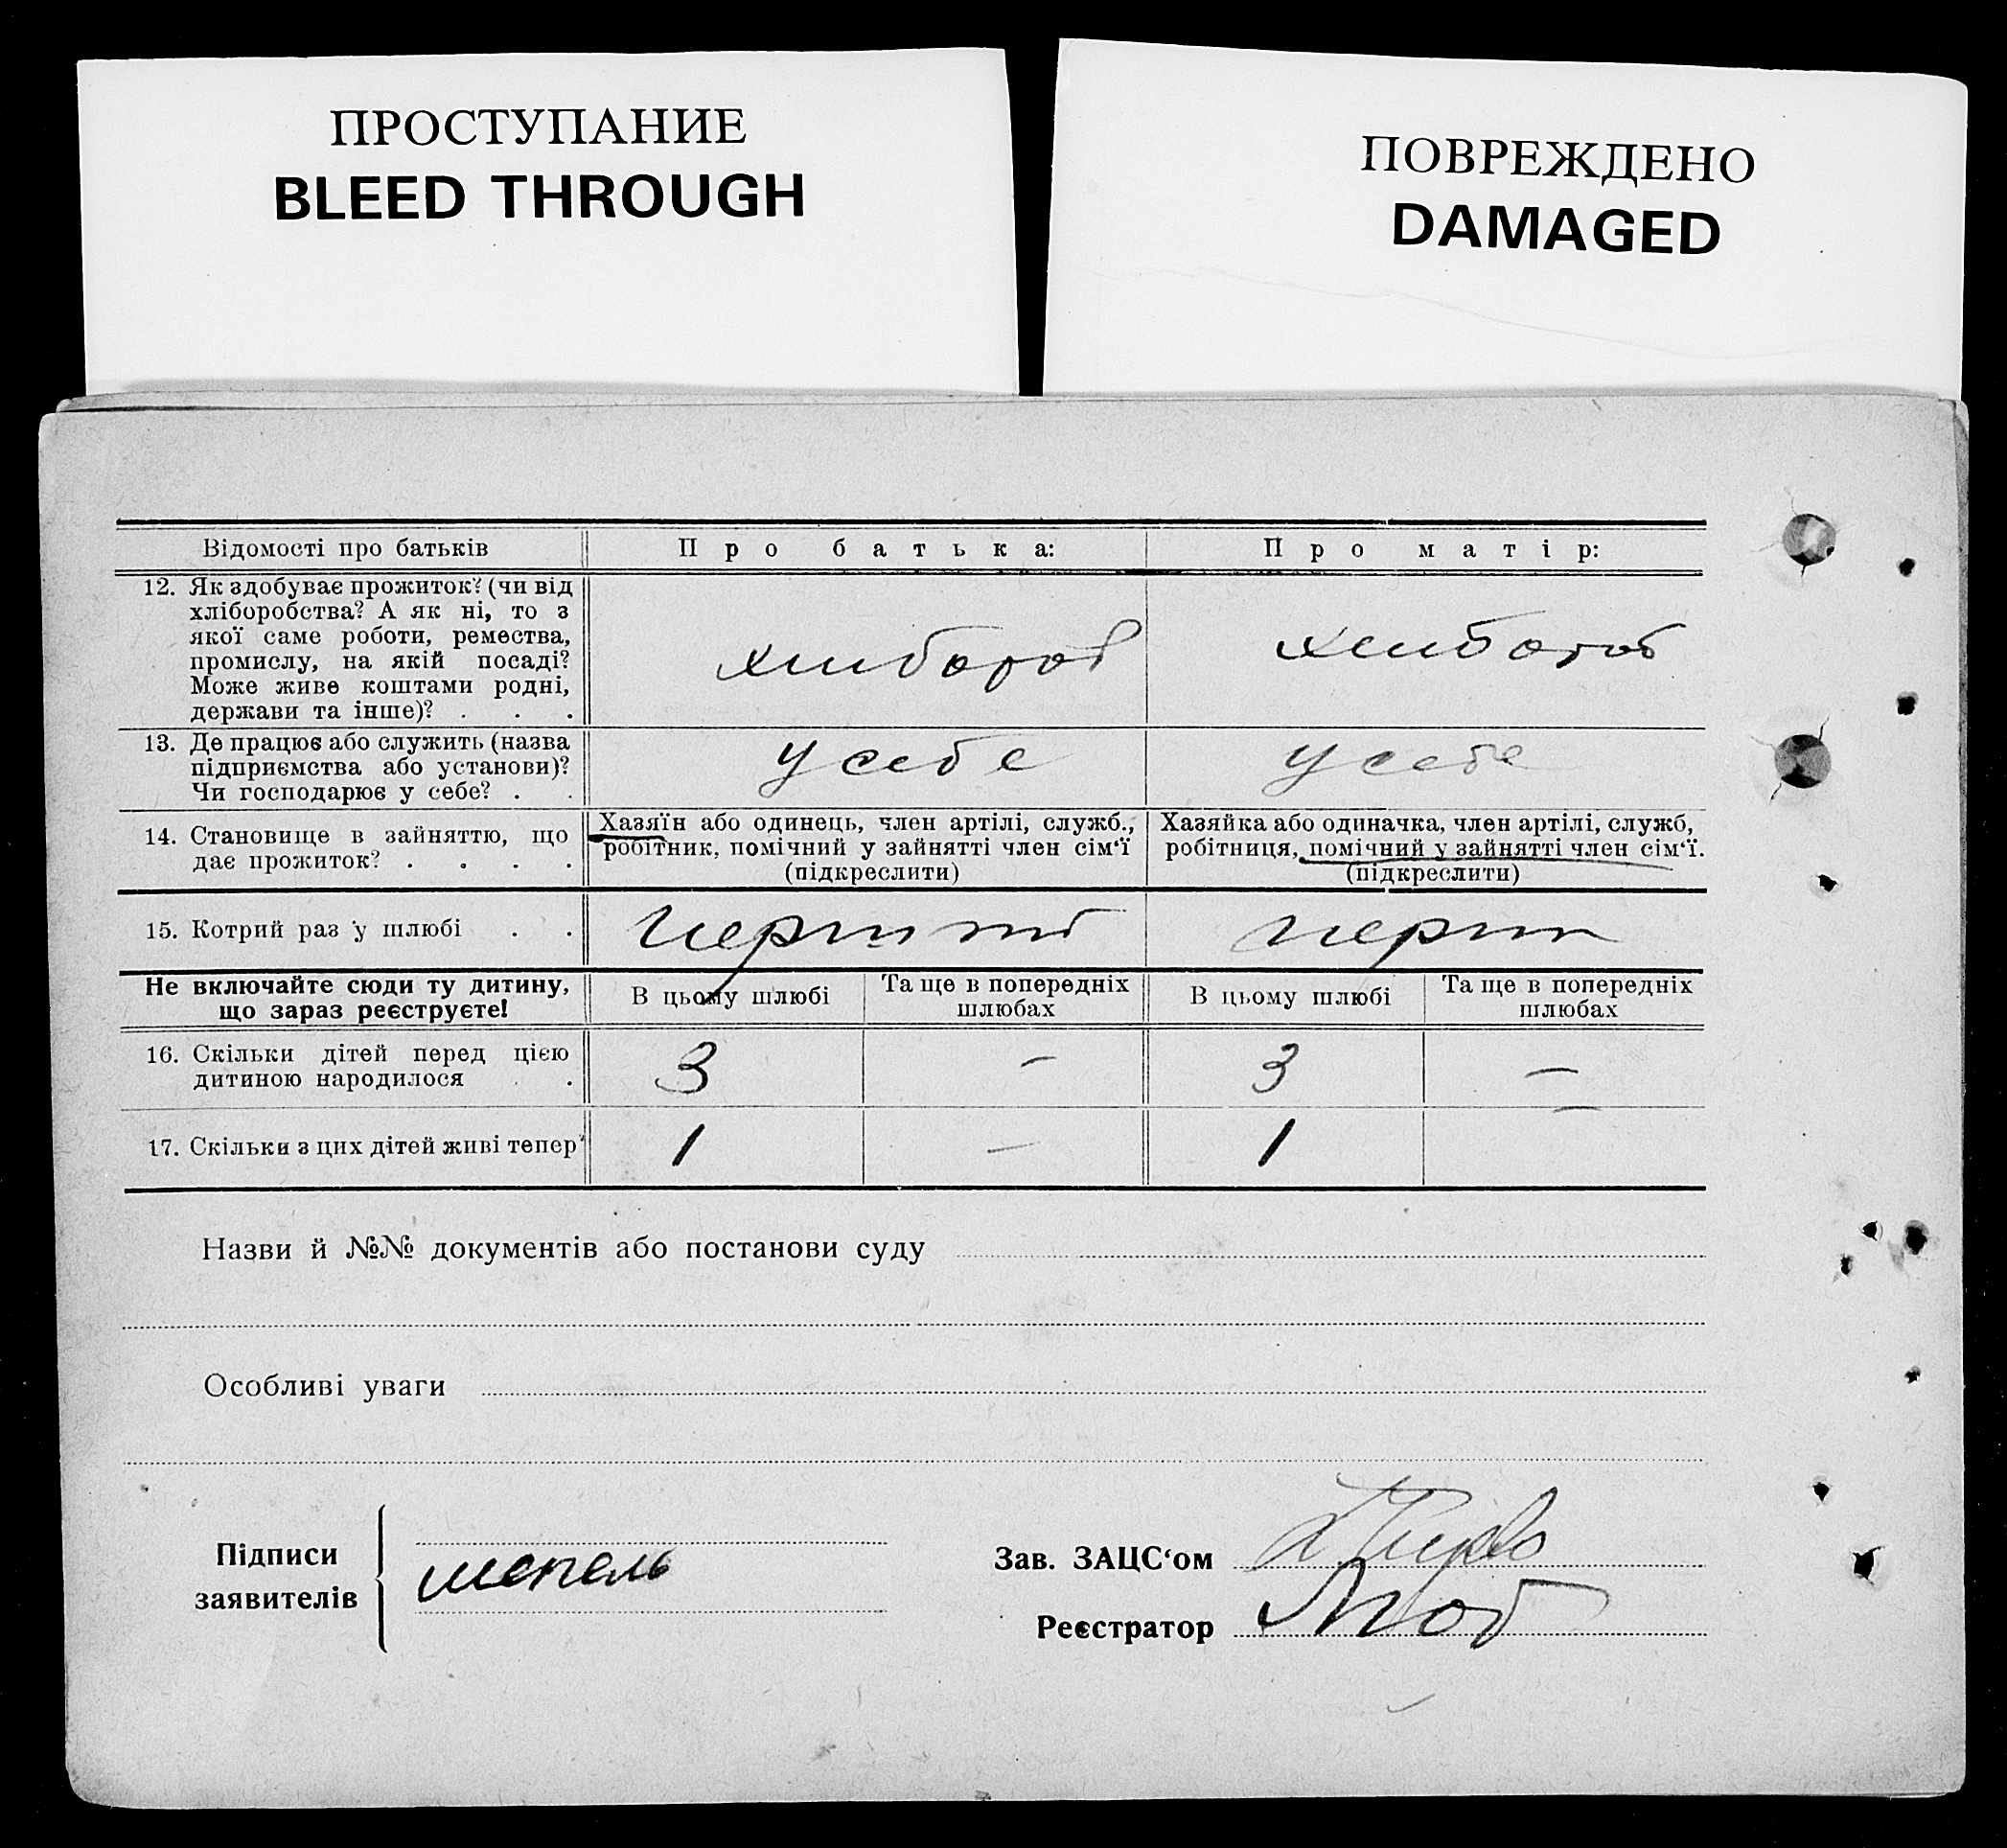 ПРОСТУПАНИЕ
BLEED THROUGH
ПОВРЕЖДЕНО
DAMAGED
Відомості про батьків Про батька: Про матір:
12. Як здобуває прожиток? (чи від
хліборобства? А як ні, то з
якої саме роботи, ремества,
промислу, на якій посаді?
Може живе коштами родні,
держави та інше)? . . .
хлибороб хлибороб
13. Де працює або служить (назва
підприємства або установи)?
Чи господарює у себе? . .
у себе у себе
14. Становище в зайняттю, що
дає прожиток? . . . .
Хазяїн або одинець, член артілі, служб.,
робітник, помічний у зайнятті член сім‘ї
(підкреслити)
Хазяйка або одиначка, член артілі, служб,
робітниця, помічний у зайнятті член сім‘ї.
(підкреслити)
15. Котрий раз у шлюбі . .
Не включайте сюди ту дитину,
що зараз реєструєте!
В цьому шлюбі
Та ще в попередніх
шлюбах
В цьому шлюбі
Та ще в попередніх
шлюбах
16. Скільки дітей перед цією
дитиною народилося . .
3 — 3 —
17. Скільки з цих дітей живі тепер?
1 — 1 —
Назви й №№ документів або постанови суду
Особливі уваги
Підписи
заявителів
Зав. ЗАЦС‘ом
Реєстратор